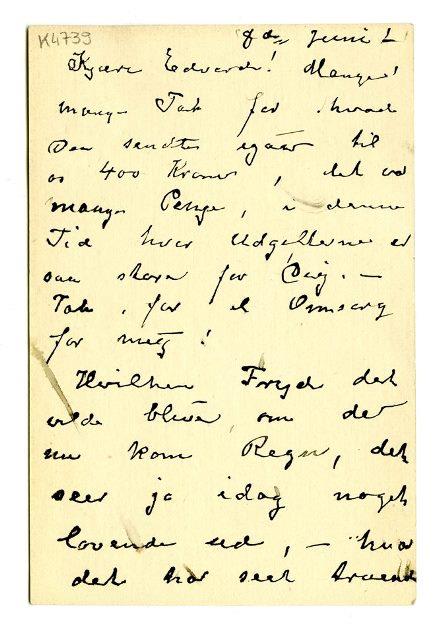 K4739
8de Juni
Kjære Edvard! Mange!
mange Tak for hvad
Du sendte igaar til
os 400 Kroner, det var
mange Penge, i denne
Tid hvor Udgifterne er
saa store for Dig. –
Tak, for al Omsorg
for meg!
Hvilken Fryd det
vilde blive, om det
nu kom Regn, det
seer jo idag noget
lovende ud, – hvor
det har seet truende